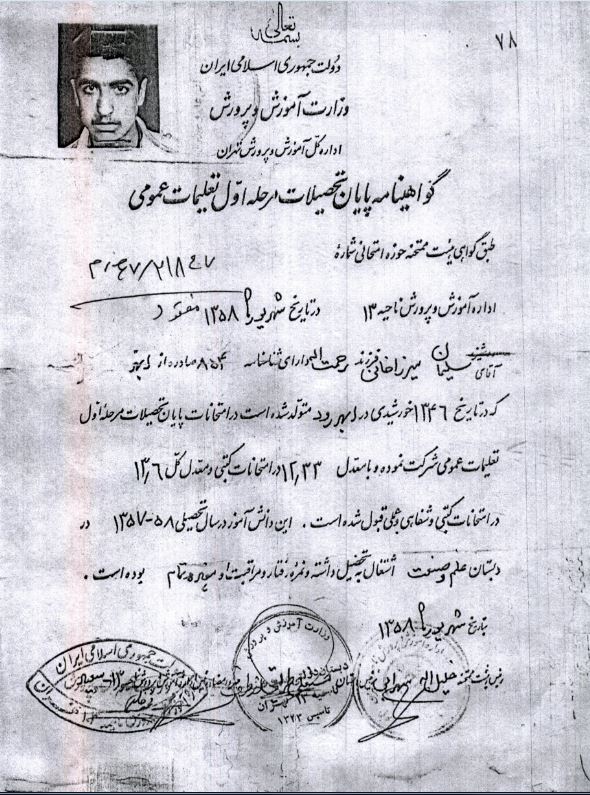 بسمه تعالی
۷۸
دولت جمهوری اسلامی ایران
وزارت آموزش و پرورش
اداره کل آموزش و پرورش تهران
گواهینامه پایان تحصیلات مرحله اول تعلیمات عمومی
طبق گواهی هیئت ممتحنه حوزه امتحانی شماره
اداره آموزش و پرورش ناحیه ۱۳ در تاریخ شهریور ماه ۱۳۵۸
آقای سلیمان میرزاخانی فرزند رحمت اله دارای شناسنامه ۸۵۴ صادره از ابهر
که در تاریخ ۱۳۴۶ خورشیدی در ابهررود متولد شده است در امتحانات پایان تحصیلات مرحله اول
تعلیمات عمومی شرکت نموده و با معدل ۱۲٫۳۳ در امتحانات کتبی و معدل کل ۱۳٫۶
در امتحانات کتبی و شفاهی و عملی قبول شده است . این دانش آموز در سال تحصیلی ۵۸-۱۳۵۷ در
دبستان علم و صنعت اشتغال به تحصیل داشته و نمره رفتار و مراقبت او بوده است .
بتاریخ شهریور ماه ۱۳۵۸
رئیس هیئت ممتحنه خلیل اله سهرابی
وزارت آموزش و پرورش
تاسیس ۱۳۴۳
جمهوری اسلامی ایران